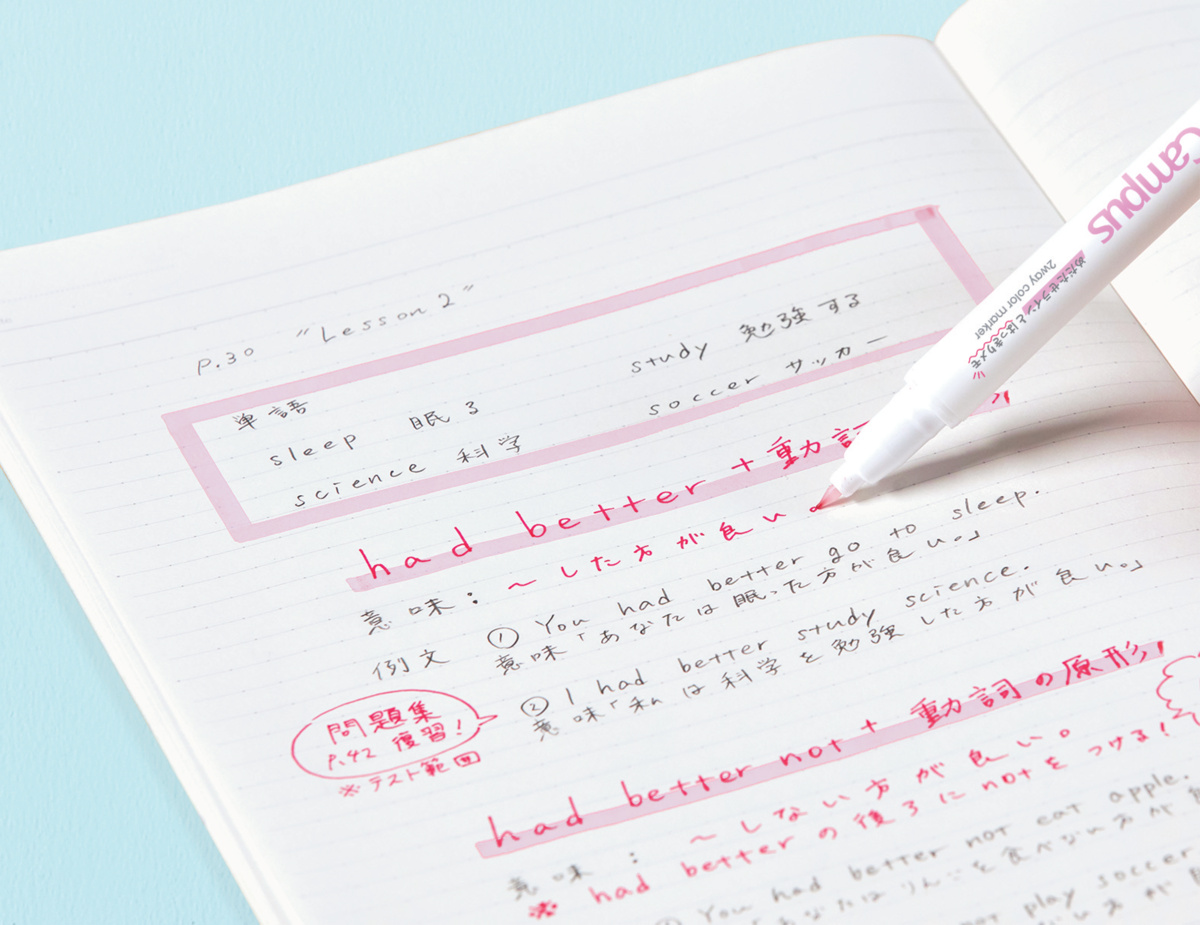 P.30 "Lesson 2"
単語
sleep 眠る study 勉強する
science 科学 soccer サッカー
had better + 動詞
意味：～した方が良い。
例文 ① You had better go to sleep.
意味「あなたは眠った方が良い。」
② I had better study science.
意味「私は科学を勉強した方が良い。」
問題集
P.42 復習！
※テスト範囲
had better not + 動詞の原形
意味：～しない方が良い。
※ had betterの後ろにnotをつける！
You had better not eat apple.
あなたはりんごを食べない方が
not play soccer
Campus
めだたせラインとはっきりメモ
2way color marker